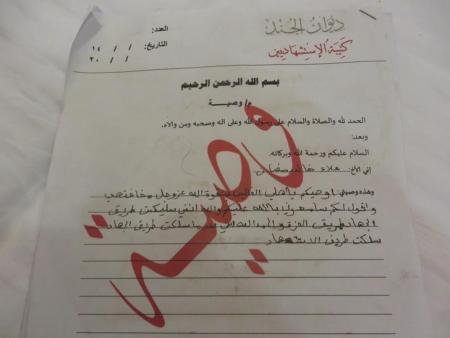 ديوان الجند
كتيبة الإستشهاديين
العدد:
التاريخ: / / ١٤
/ / ٢٠
بسم الله الرحمن الرحيم
م/ وصية
الحمد لله والصلاة والسلام على رسول الله وعلى اله وصحبه ومن والاه.
وبعد:
السلام عليكم ورحمة الله وبركاته.
إني الأخ: علاء
وهذه وصيتي: اوصيكم يا أهلي الله عز وجل
واقول لكم بالله عليكم والله انني سلكت طريق
الجهاد طريق العزة والحمد لله سلكت طريق الجهاد
سلكت طريق
وصية